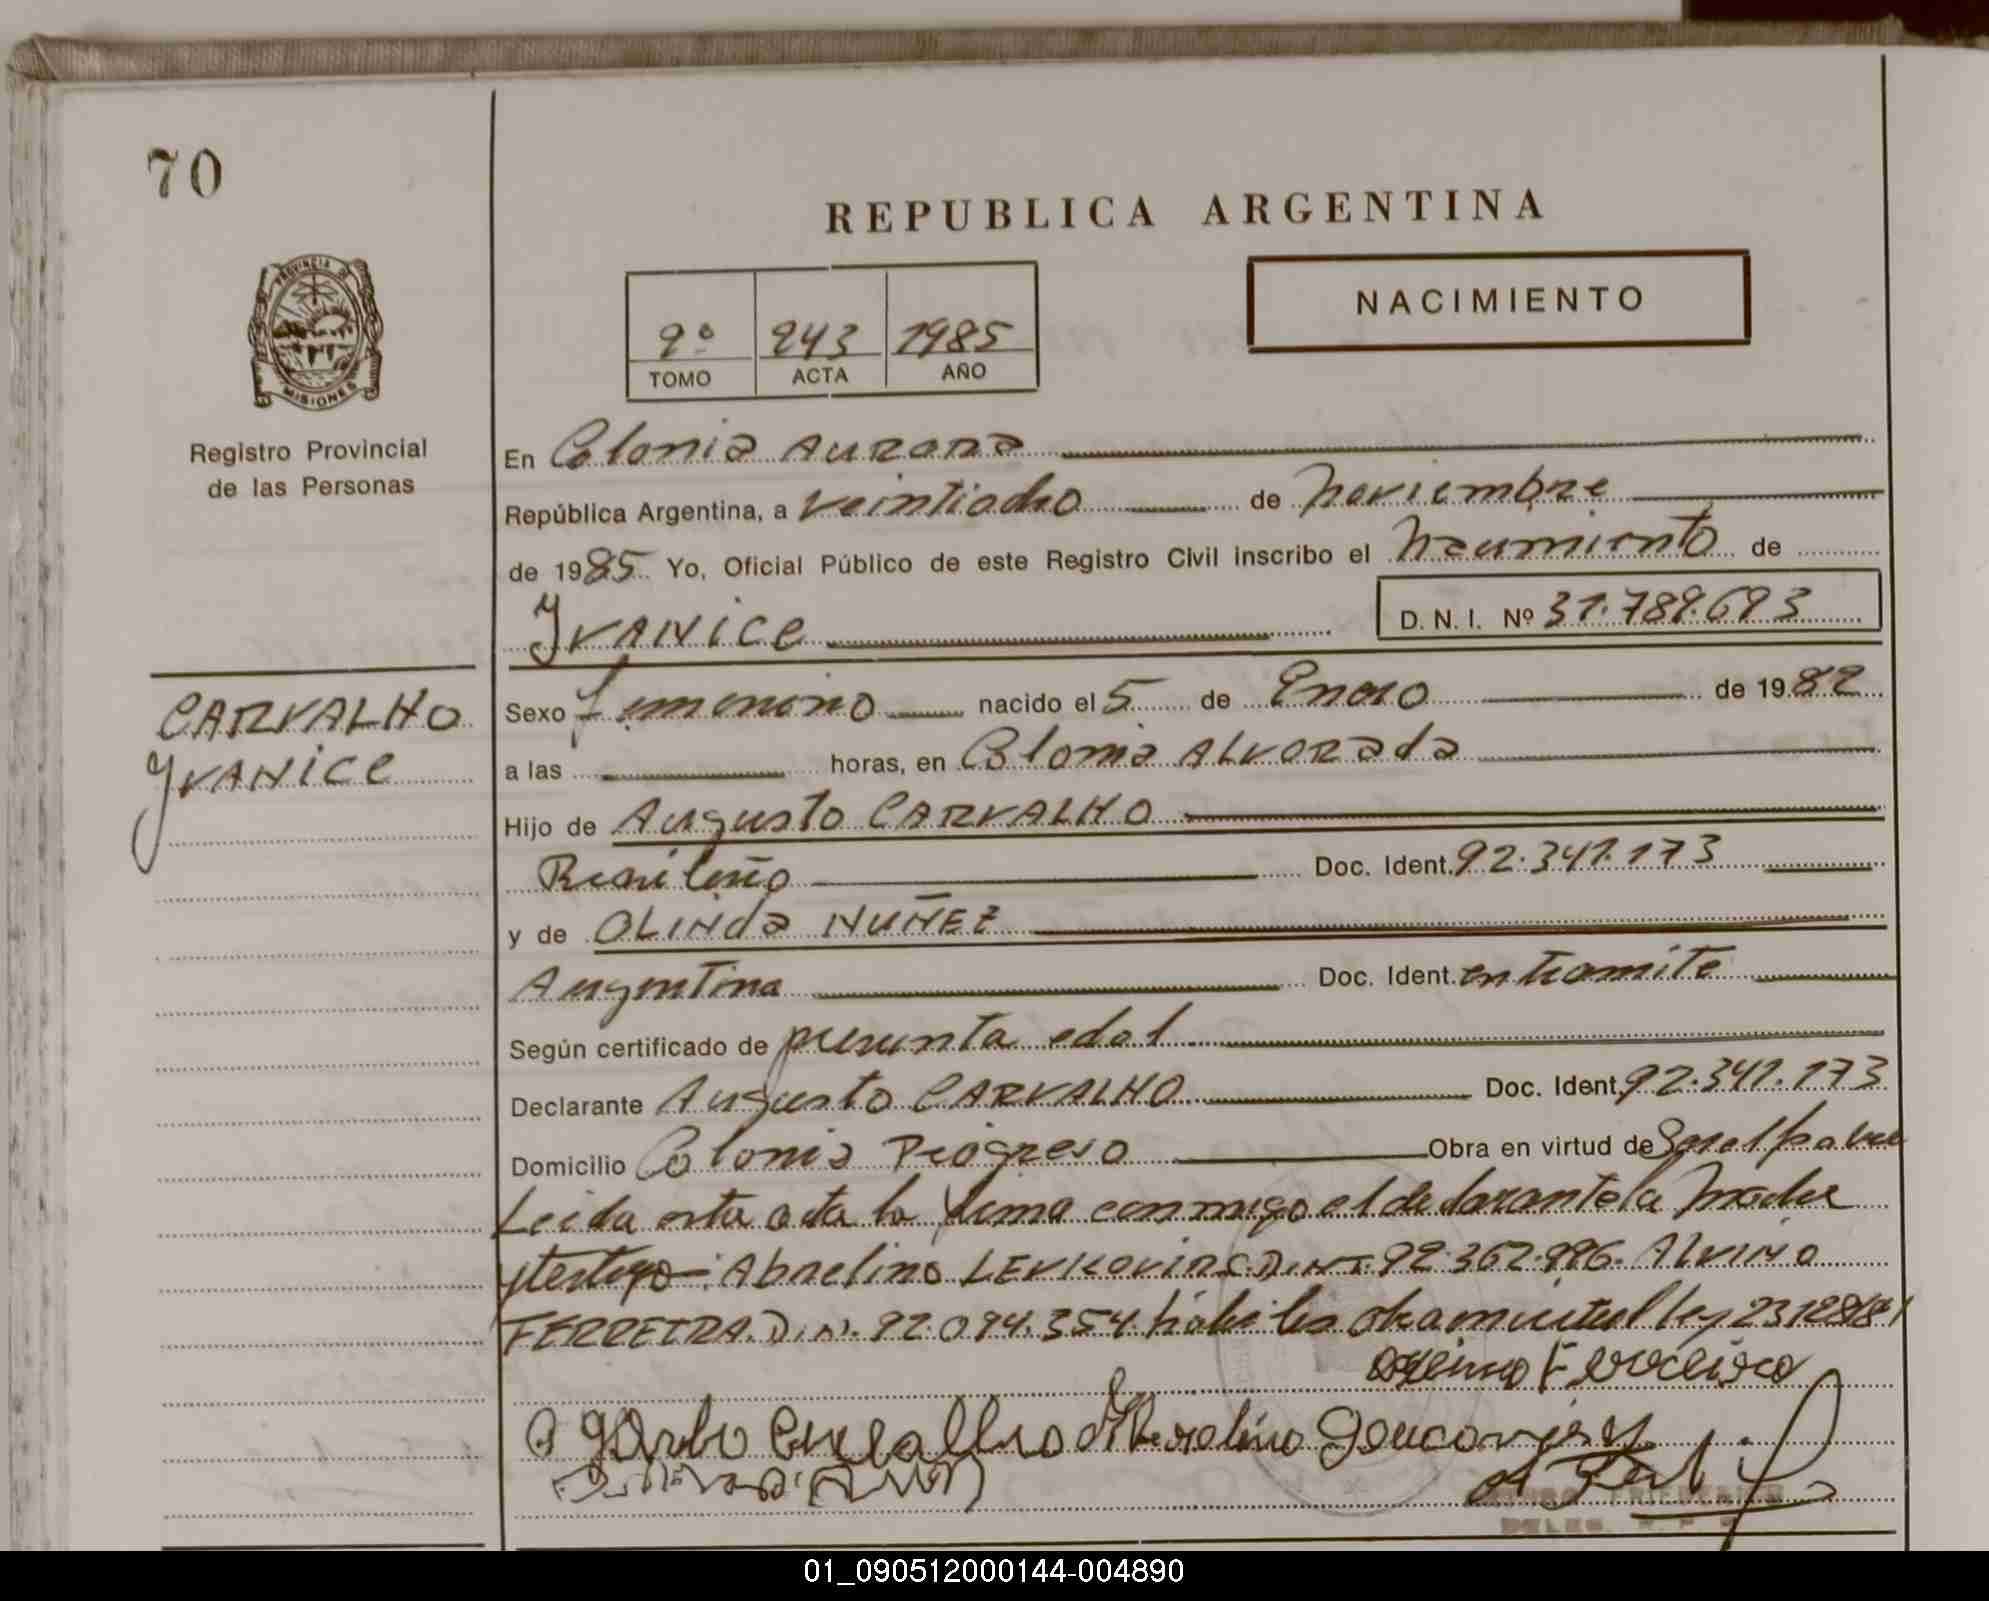 70
REPUBLICA ARGENTINA
PROVINCIA DE
MISIONES
NACIMIENTO
2º 243 1985
TOMO ACTA AÑO
Registro Provincial
de las Personas
En Colonia Aurora
República Argentina, a veintiocho de noviembre
de 1985 Yo, Oficial Público de este Registro Civil inscribo el nacimiento de
Yvanice D. N. I. Nº 31.789.693
CARVALHO
Yvanice
Sexo femenino nacido el 5 de Enero de 1982
a las horas, en Colonia ALVORada
Hijo de Augusto CARVALHO
Brasileño Doc. Ident. 92.341.173
y de OLINda NUÑEZ
Argentina Doc. Ident. en tramite
Según certificado de presunta edad
Declarante Augusto CARVALHO Doc. Ident. 92.341.173
Domicilio Colonia Progreso Obra en virtud de Ser el padre
Leida esta acta la firma conmigo el declarante la madre
y testigo: Abrelino D.N.I. 92.362.996. ALVINO
FERREIRA. D.N.I. 92.094.354. habiles ley 23128/84
Ferreira